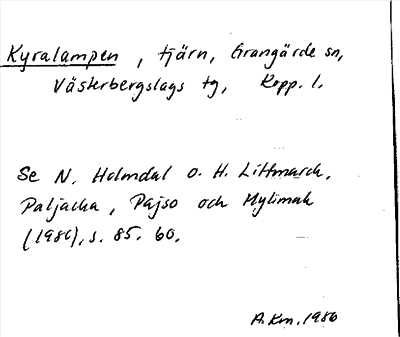 Kyralampen, tjärn, Grangärde sn,
Västerbergslags tg, Kopp. l.
Se N. Holmdal o. H. Littmarck,
Paljacka, Pajso och Mylimak
(1980), s. 85. 60.
A. Km. 1986